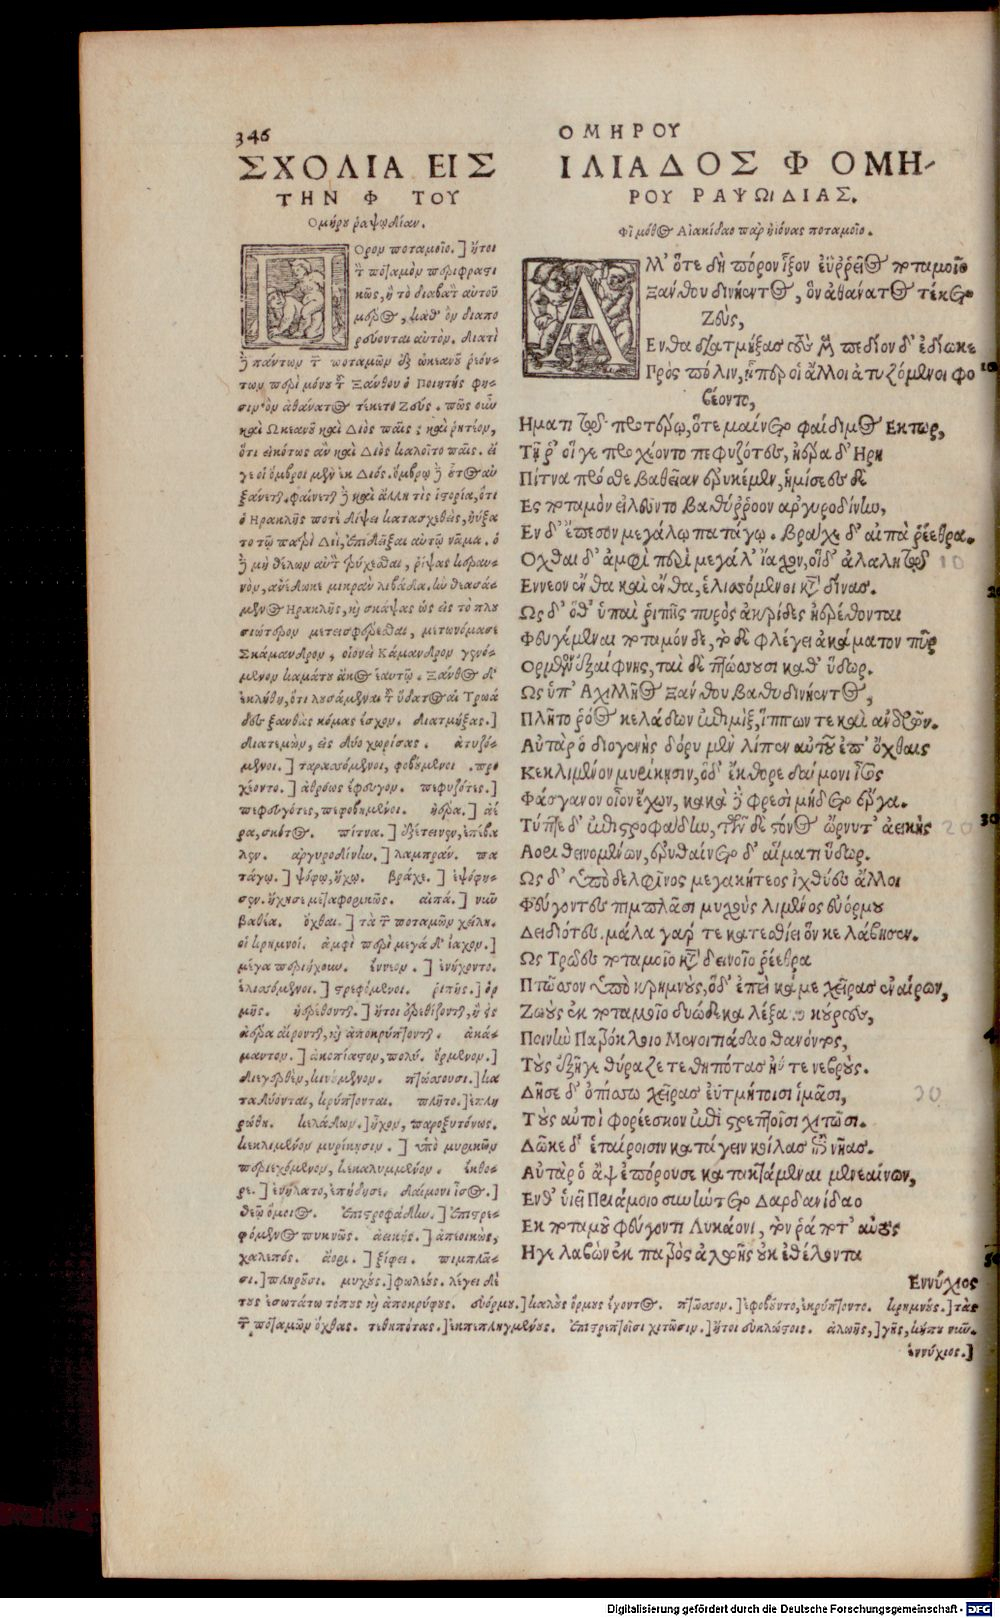 346
ΣΧΟΛΙΑ ΕΙΣ
ΤΗΝ Φ ΤΟΥ
Ομήρου ῥαψῳδίαν.
Πορον ποταμοῖο.] ἤτοι
τ̃ ποταμὸν περιφραστι
κῶς, ἢ τὸ διαβατ̀ αὐτοῦ
μέρος, καθ' ὃν διαπο
ρεύονται αὐτόν. διατί
ἢ πάντων τ̃ ποταμῶν ἐξ ὠκεανοῦ ῥεόν-
των περὶ μόνου τ̃ Ξάνθου ὁ Ποιητής φη-
σιν· ὃν ἀθάνατος τέκετο Ζεύς. πῶς οὖν
καὶ Ωκεανοῦ καὶ Διὸς παῖς; καὶ ῥητέον,
ὅτι εἰκότως ἂν καὶ Διὸς καλοῖτο παῖς. εἴ
γε οἱ ὄμβροι μὲν ἐκ Διός. ὄμβρῳ δὲ οὗτος αὐ
ξάνεται. φαίνεται δὲ καὶ ἄλλη τὶς ἱστορία, ὅτι
ὁ Ηρακλῆς ποτὲ δίψει κατασχεθεὶς, ηὔξα
το τῷ πατρὶ Διὶ, ἐπιδεῖξαι αὐτῷ νᾶμα. ὁ
δὲ μὴ θέλων αὐτ̀ τρύχεσθαι, ῥίψας κεραυ-
νὸν, ἀνέδωκε μικρὰν λιβάδα. ἣν θεασά-
μενος Ηρακλῆς, καὶ σκάψας ὡς εἰς τὸ πλου
σιώτερον μετεισφέρεσθαι, μετωνόμασε
Σκάμανδρον, οἱονεὶ Κάμανδρον γενό-
μενον καμάτου ἀνδρὸς ἑαυτῷ. Ξάνθος δὲ
ἐκλήθη, ὅτι λουσάμεναι τ̃ ὕδατος αἱ Τρωά
δες ξανθὰς κόμας ἔσχον. διατμήξας.]
διατεμὼν, εἰς δύο χωρίσας. ἀτυζό-
μενοι.] ταρασσόμενοι, φοβούμενοι. προ
χέοντο.] ἀθρόως ἔφευγον. πεφυζότες.]
πεφευγότες, πεφοβημένοι. ἠέρα.] ἀέ
ρα, σκότος. πίτνα.] ἐξέτεινεν, ἐπέβα
λεν. ἀργυροδίνην.] λαμπράν. πα
τάγῳ.] ψόφῳ, ἤχῳ. βράχε.] ἐψόφη-
σεν. ἤχησε μεταφορικῶς. αἰπά.] νῦν
βαθέα. ὄχθαι.] τὰ τ̃ ποταμῶν χείλη.
οἱ κρημνοί. ἀμφὶ περὶ μεγάλ' ἴαχον.]
μέγα περιήχουν. ἔννεον.] ἐνήχοντο.
ἑλισσόμενοι.] στρεφόμενοι. ῥιπῆς.] ὁρ
μῆς. ἠερέθονται.] ἤτοι ἐρεθίζονται, ἢ εἰς
ἀέρα αἴρονται, καὶ ἀποκρύπτονται. ἀκά-
ματον.] ἀκοπίατον, πολύ. ὄρμενον.]
διεγερθὲν, κινούμενον. πτώσσουσι.] κα
ταδύονται, κρύπτονται. πλῆτο.] ἐπλη
ρώθη. κελάδων.] ἤχων, παροξυτόνως.
κεκλιμένον μυρίκησιν.] ὑπὸ μυρικῶν
περιεχόμενον, κεκαλυμμένον. ἔκθο-
ρε.] ἐνήλατο, ἐπήδησε. δαίμονι ἶσος.]
θεῷ ὅμοιος. Ἐπιστροφάδην.] Ἐπιστρε-
φόμενος πυκνῶς. ἀεικὴς.] ἀπεοικὼς,
χαλεπός. ἄορι.] ξίφει. πιμπλᾶ-
σι.] πληροῦσι. μυχούς.] φωλεούς. λέγει δὲ
τοὺς ἐσωτάτω τόπους καὶ ἀποκρύφους. εὐόρμου.] καλοὺς ὅρμους ἔχοντος. πτῶσσον.] ἐφοβοῦντο, ἐκρύπτοντο. κρημνούς.] τὰς
τ̃ ποταμῶν ὄχθας. τεθηπότας.] ἐκπεπληγμένους. Ἐπιτρεπτοῖσι χιτῶσιν.] ἤτοι εὐκλώστοις. ἀλωῆς,] γῆς, κήπου νῦν.
ἐννύχιος.]
ΟΜΗΡΟΥ
ΙΛΙΑΔΟΣ Φ ΟΜΗ-
ΡΟΥ ΡΑΨΩΙΔΙΑΣ.
Φῖ μόθος Αἰακίδαο παρ' ἠϊόνας ποταμοῖο.
ΑΛΛ' ὅτε δὴ πόρον ἷξον ἐϋῤῥεῖος ποταμοῖο
Ξάνθου δινήεντος, ὃν ἀθάνατος τέκετο
Ζεὺς,
Ενθα διατμήξας τοὺς μὲν πεδίον δ' ἐδίωκε
Πρὸς πόλιν, ᾗπερ οἱ ἄλλοι ἀτυζόμενοι φο
βέοντο,
Ηματι τῷ προτέρῳ, ὅτε μαίνετο φαίδιμος Εκτωρ,
Τῇ ῥ' οἵ γε προχέοντο πεφυζότες, ἠέρα δ' Ηρη
Πίτνα πρόσθε βαθεῖαν ἐρυκέμεν, ἡμίσεες δὲ
Ες ποταμὸν εἰλεῦντο βαθύῤῥοον ἀργυροδίνην,
Εν δ' ἔπεσον μεγάλῳ πατάγῳ. βράχε δ' αἰπὰ ῥέεθρα.
Οχθαι δ' ἀμφὶ περὶ μεγάλ' ἴαχον, οἱ δ' ἀλαλητῷ 10
Εννεον ἔνθα καὶ ἔνθα, ἑλισσόμενοι κατὰ δίνας.
Ως δ' ὅθ' ὑπαὶ ῥιπῆς πυρὸς ἀκρίδες ἠερέθονται
Φευγέμεναι ποταμόνδε, τὸ δὲ φλέγει ἀκάματον πῦρ
Ορμενον ἐξαίφνης, ταὶ δὲ πτώσσουσι καθ' ὕδωρ.
Ως ὑπ' Αχιλλῆος Ξάνθου βαθυδινήεντος,
Πλῆτο ῥόος κελάδων ἐπιμὶξ, ἵππων τε καὶ ἀνδρῶν.
Αὐτὰρ ὁ διογενὴς δόρυ μὲν λίπεν αὐτοῦ ἐπ' ὄχθαις
Κεκλιμένον μυρίκησιν, ὁ δ' ἔκθορε δαίμονι ἶσος
Φάσγανον οἶον ἔχων, κακὰ δὲ φρεσὶ μήδετο ἔργα.
Τύπτε δ' ἐπιστροφάδην, τῶν δὲ στόνος ὤρνυτ' ἀεικὴς 20
Αορι θεινομένων, ἐρυθαίνετο δ' αἵματι ὕδωρ.
Ως δ' ὑπὸ δελφῖνος μεγακήτεος ἰχθύες ἄλλοι
Φεύγοντες πιμπλᾶσι μυχοὺς λιμένος εὐόρμου
Δειδιότες. μάλα γάρ τε κατεσθίει ὅν κε λάβησιν.
Ως Τρῶες ποταμοῖο κατὰ δεινοῖο ῥέεθρα
Πτῶσσον ὑπὸ κρημνούς, ὁ δ' ἐπεὶ κάμε χεῖρας ἐναίρων,
Ζωοὺς ἐκ ποταμοῖο δυώδεκα λέξατο κούρους,
Ποινὴν Πατρόκλοιο Μενοιτιάδαο θανόντος,
Τοὺς ἐξῆγε θύραζε τεθηπότας ἠΰτε νεβρούς.
Δῆσε δ' ὀπίσσω χεῖρας ἐϋτμήτοισι ἱμᾶσι, 30
Τοὺς αὐτοὶ φορέεσκον ἐπὶ στρεπτοῖσι χιτῶσι.
Δῶκε δ' ἑταίροισιν κατάγειν κοίλας ἐπὶ νῆας.
Αὐτὰρ ὁ ἂψ ἐπόρουσε κατακτάμεναι μενεαίνων,
Ενθ' υἱεῖ Πριάμοιο συνήντετο Δαρδανίδαο
Εκ ποταμοῦ φεύγοντι Λυκάονι, τόν ῥά ποτ' αὐτὸς
Ηγε λαβὼν ἐκ πατρὸς ἀλωῆς οὐκ ἐθέλοντα
Εννύχιος
Digitalisierung gefördert durch die Deutsche Forschungsgemeinschaft - DFG